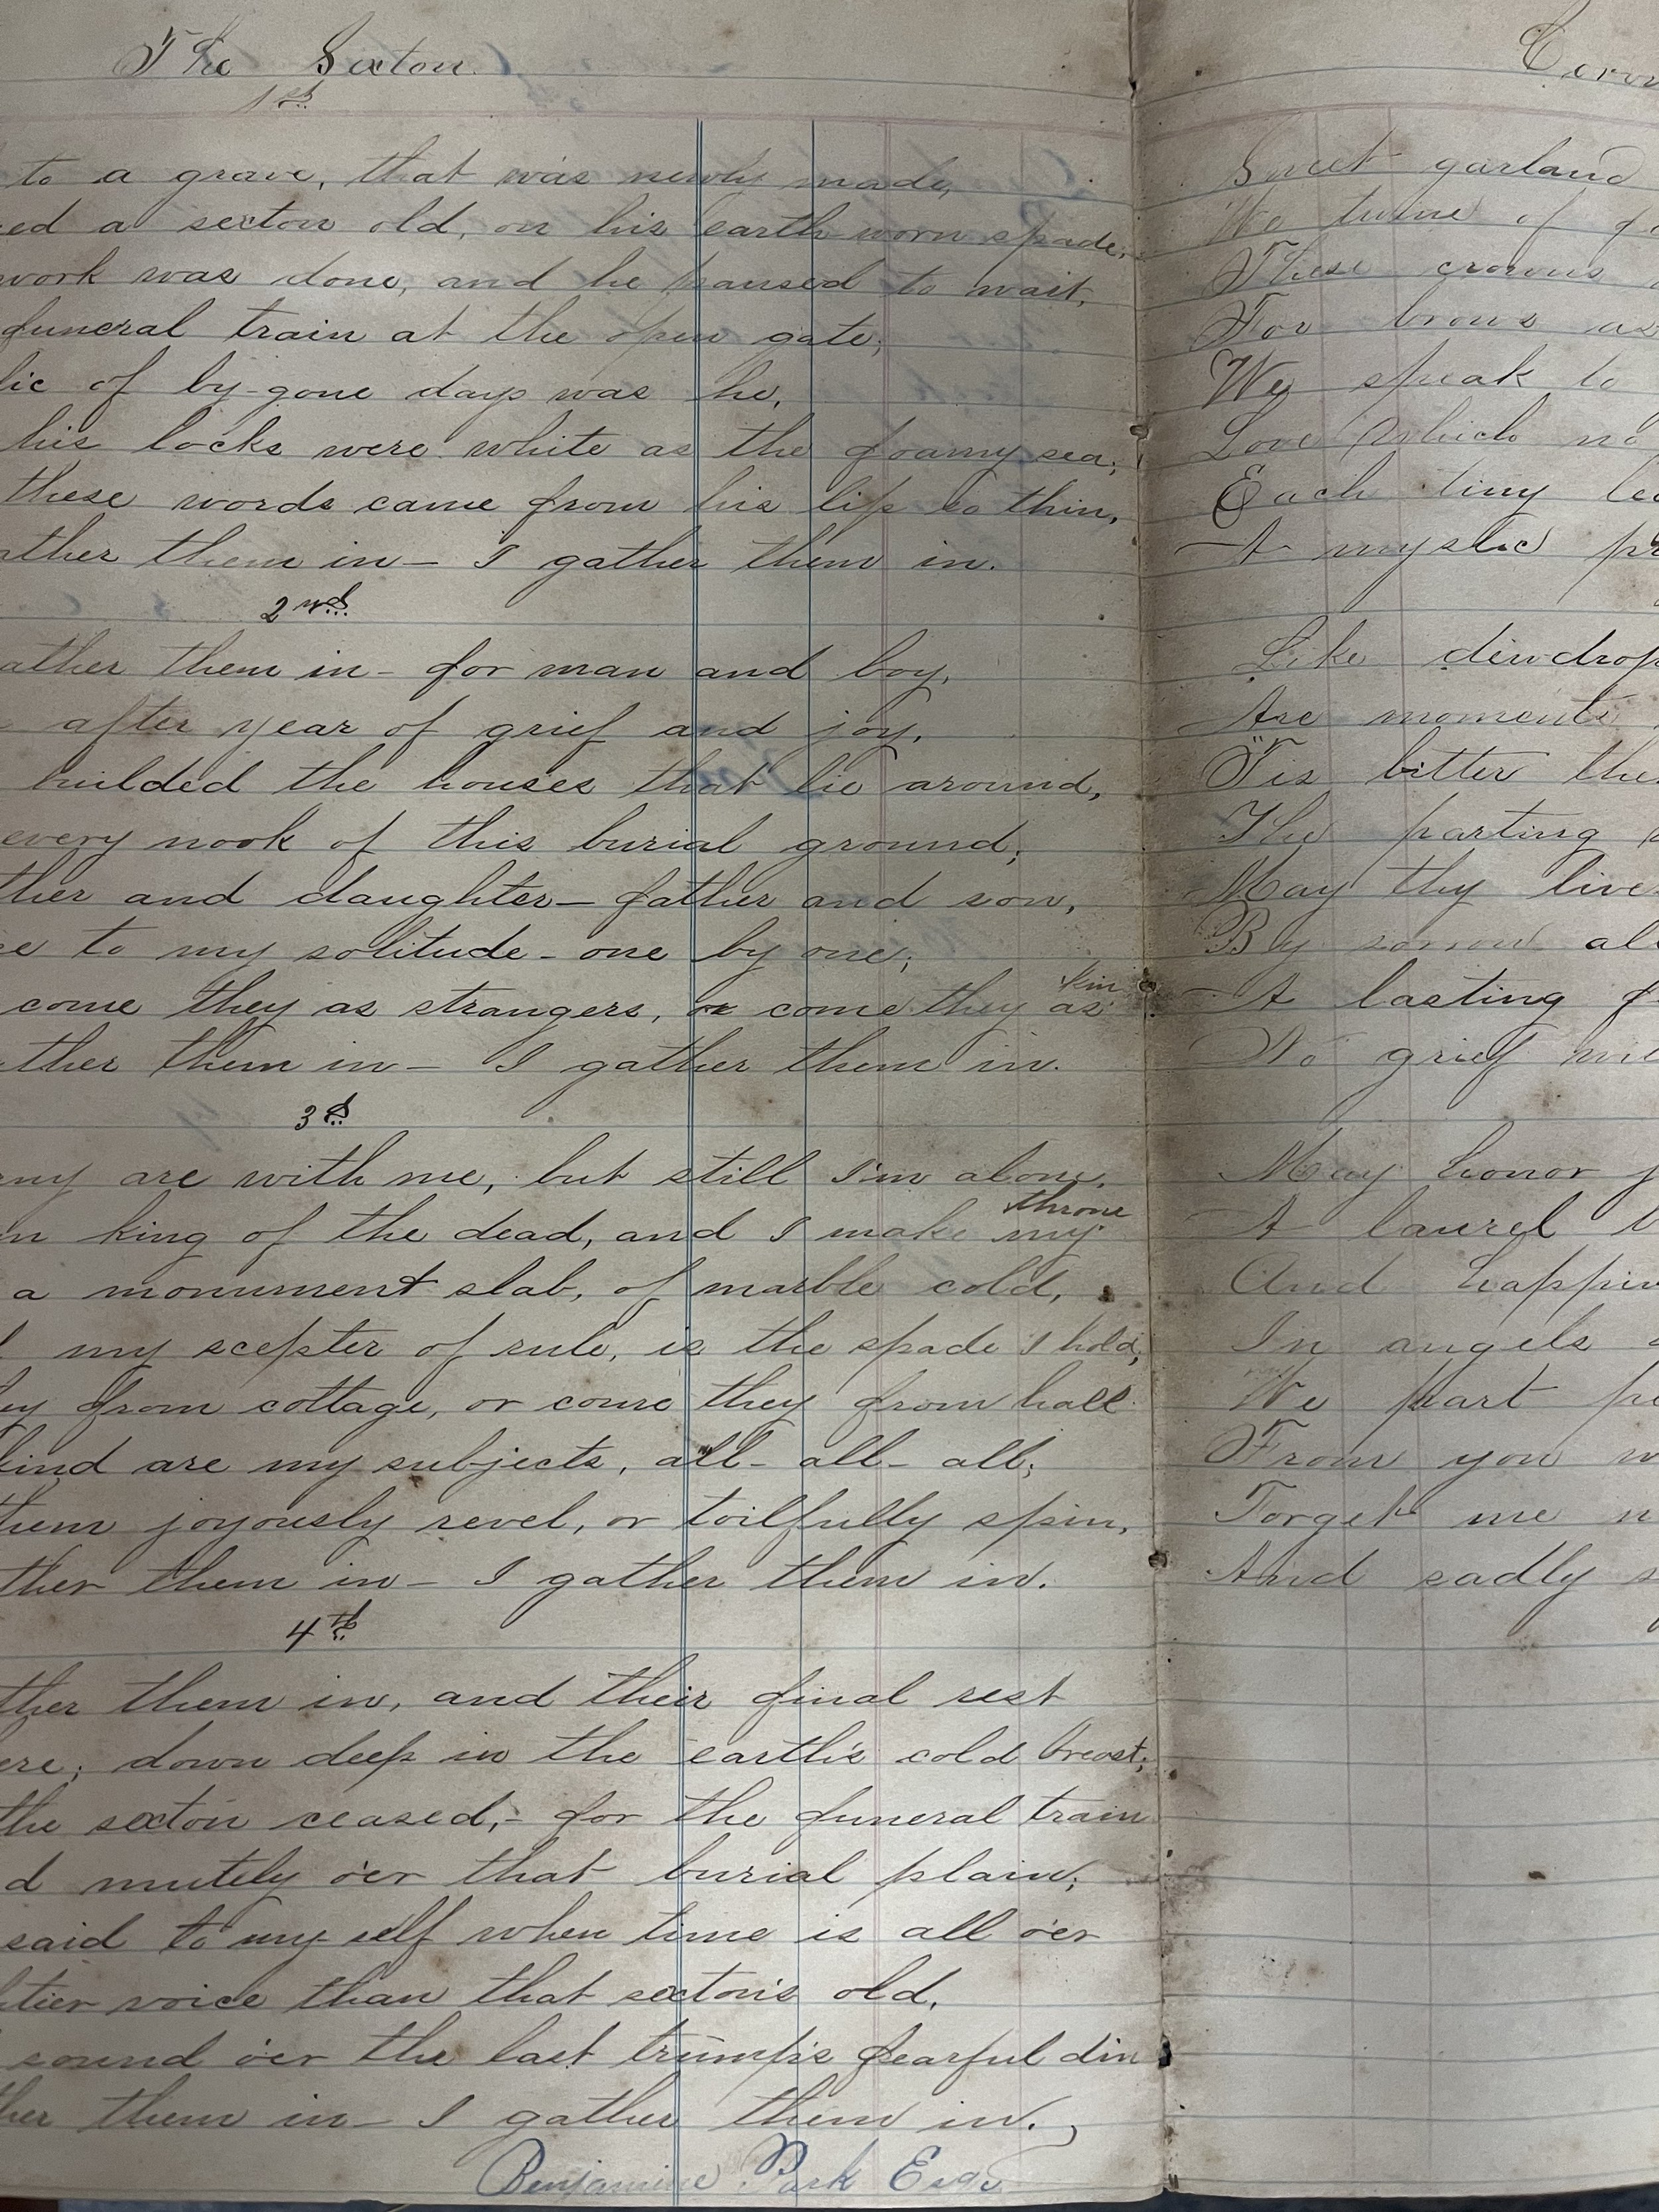 The Sexton.
1st
to a grave, that was newly made,
ed a sexton old, on his earth-worn spade,
work was done, and he paused to wait,
funeral train at the open gate;
lic of by-gone days was he,
his locks were white as the foamy sea;
these words came from his lips so thin,
ather them in— I gather them in.
2nd
ather them in— for man and boy,
after year of grief and joy,
builded the houses that lie around,
every nook of this burial ground;
ther and daughter— father and son,
e to my solitude— one by one;
come they as strangers, or come they as kin
ther them in— I gather them in.
3d
ny are with me, but still I'm alone,
m king of the dead, and I make my throne
a monument slab, of marble cold,
my scepter of rule, is the spade I hold;
ey from cottage, or come they from hall
kind are my subjects, all— all— all;
them joyously revel, or toilfully spin,
ther them in— I gather them in.
4th
ther them in, and their final rest
ere; down deep in the earth's cold breast;
the sexton ceased,— for the funeral train
d mutely o'er that burial plain;
said to my self when time is all o'er
htier voice than that sexton's old,
sound o'er the last trump's fearful din
ther them in— I gather them in.
Benjamine Park Esqr
Coron
Sweet garland
We twine of
These crowns
For brows as
We speak to
Love which no
Each tiny le
A mystic pr
Like dewdrop
Are moments
'Tis bitter the
The parting
May thy live
By sorrow al
A lasting f
No grief
May honor
A laurel
And happin
In angels
We part
From you w
Forget me n
And sadly s